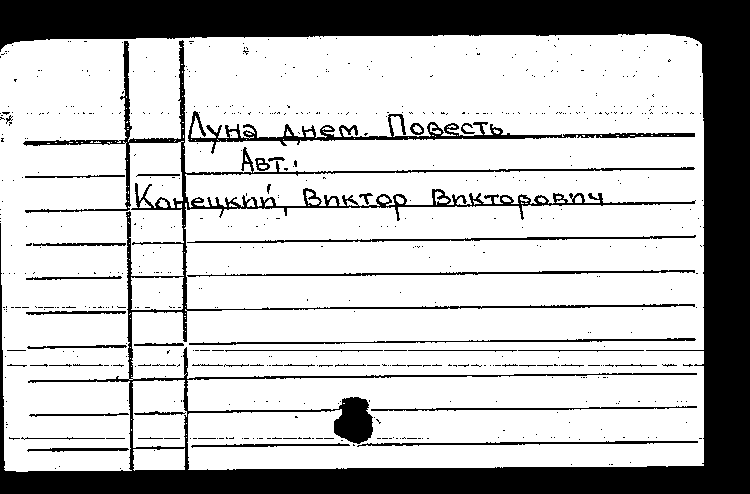 Луна днем. Повесть.
Авт.:
Конецкий, Виктор Викторович